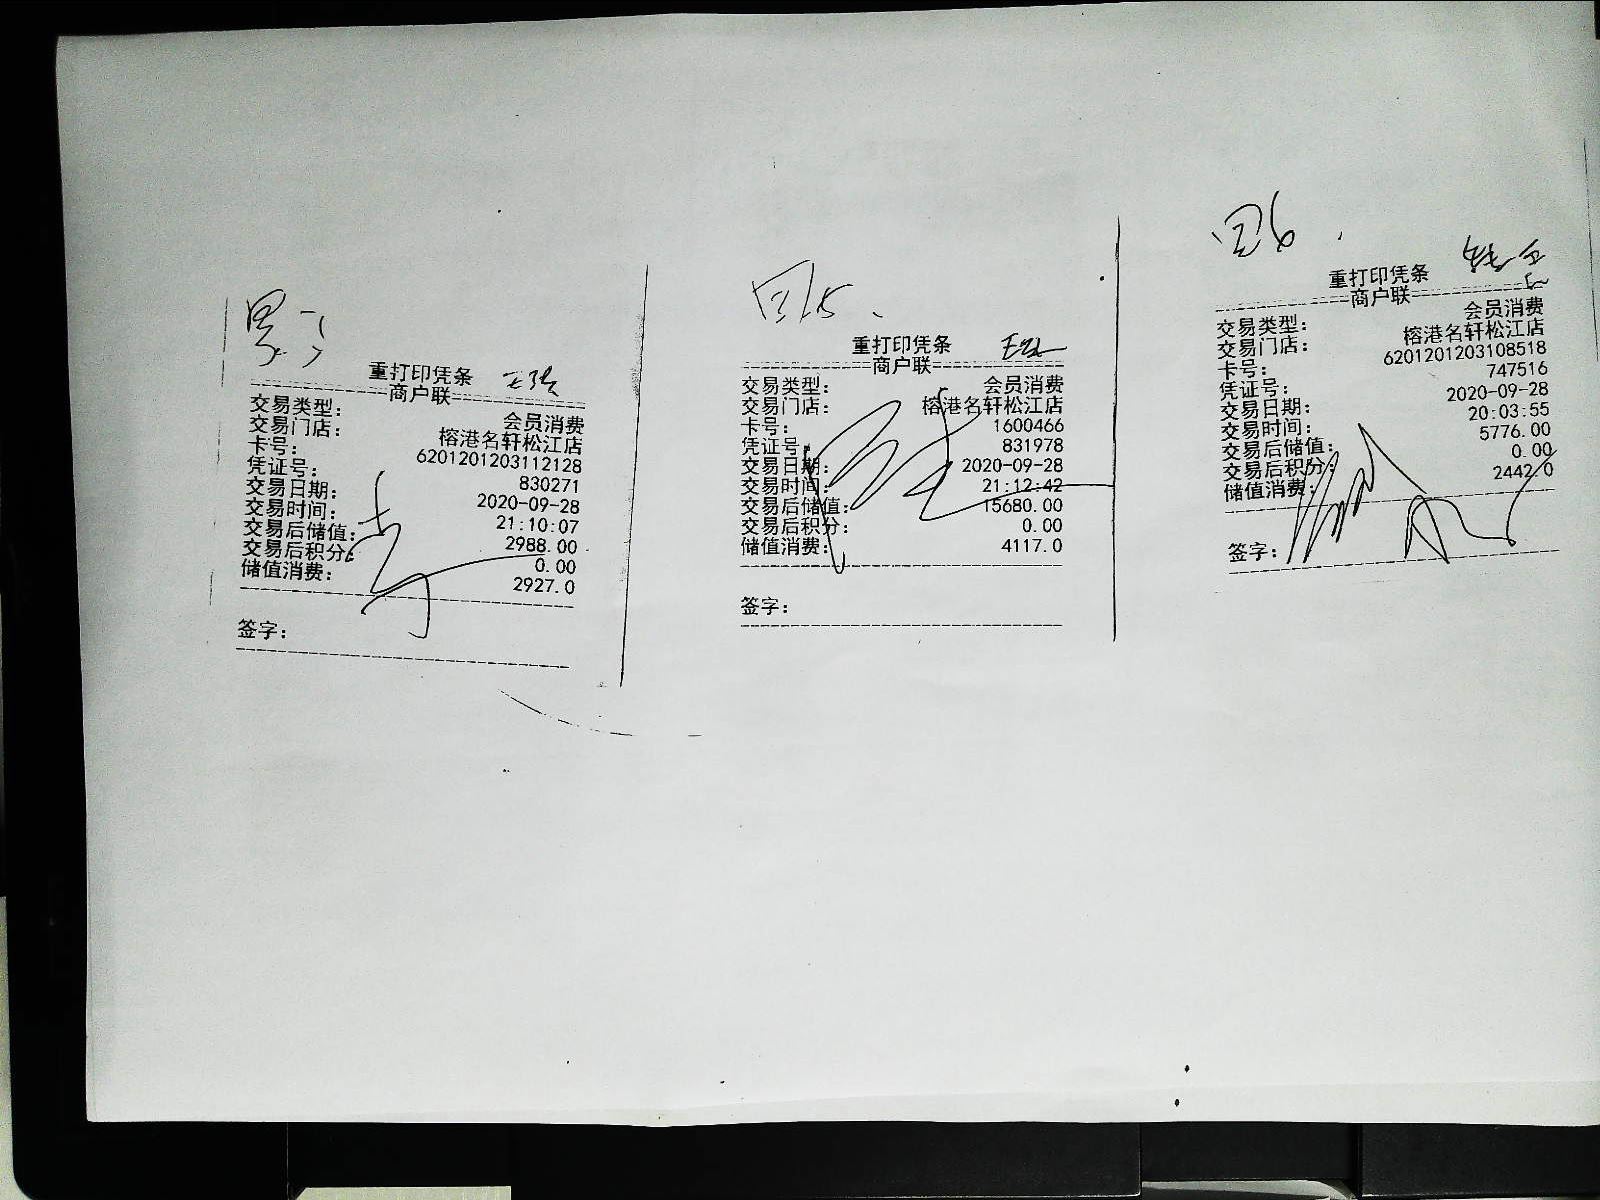 重打印凭条
商户联
交易类型: 会员消费
交易门店: 榕港名轩松江店
卡号: 6201201203112128
凭证号: 830271
交易日期: 2020-09-28
交易时间: 21:10:07
交易后储值: 2988.00
交易后积分: 0.00
储值消费: 2927.0
签字:
重打印凭条
商户联
交易类型: 会员消费
交易门店: 榕港名轩松江店
卡号: 1600466
凭证号: 831978
交易日期: 2020-09-28
交易时间: 21:12:42
交易后储值: 15680.00
交易后积分: 0.00
储值消费: 4117.0
签字:
重打印凭条
商户联
交易类型: 会员消费
交易门店: 榕港名轩松江店
卡号: 6201201203108518
凭证号: 747516
交易日期: 2020-09-28
交易时间: 20:03:55
交易后储值: 5776.00
交易后积分: 0.00
储值消费: 2442.0
签字: